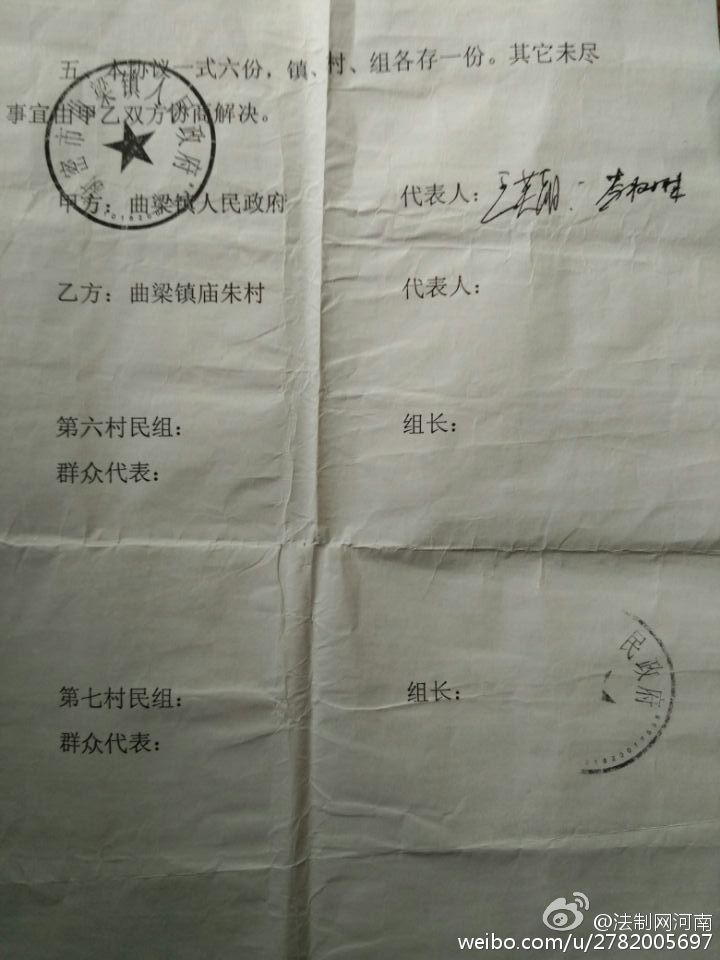 五、本协议一式六份，镇、村、组各存一份。其它未尽
事宜由甲乙双方协商解决。
甲方：曲梁镇人民政府
代表人：
乙方：曲梁镇庙朱村
代表人：
第六村民组：
组长：
群众代表：
第七村民组：
组长：
群众代表：
市曲梁镇人民政府
民政府
@法制网河南
weibo.com/u/2782005697